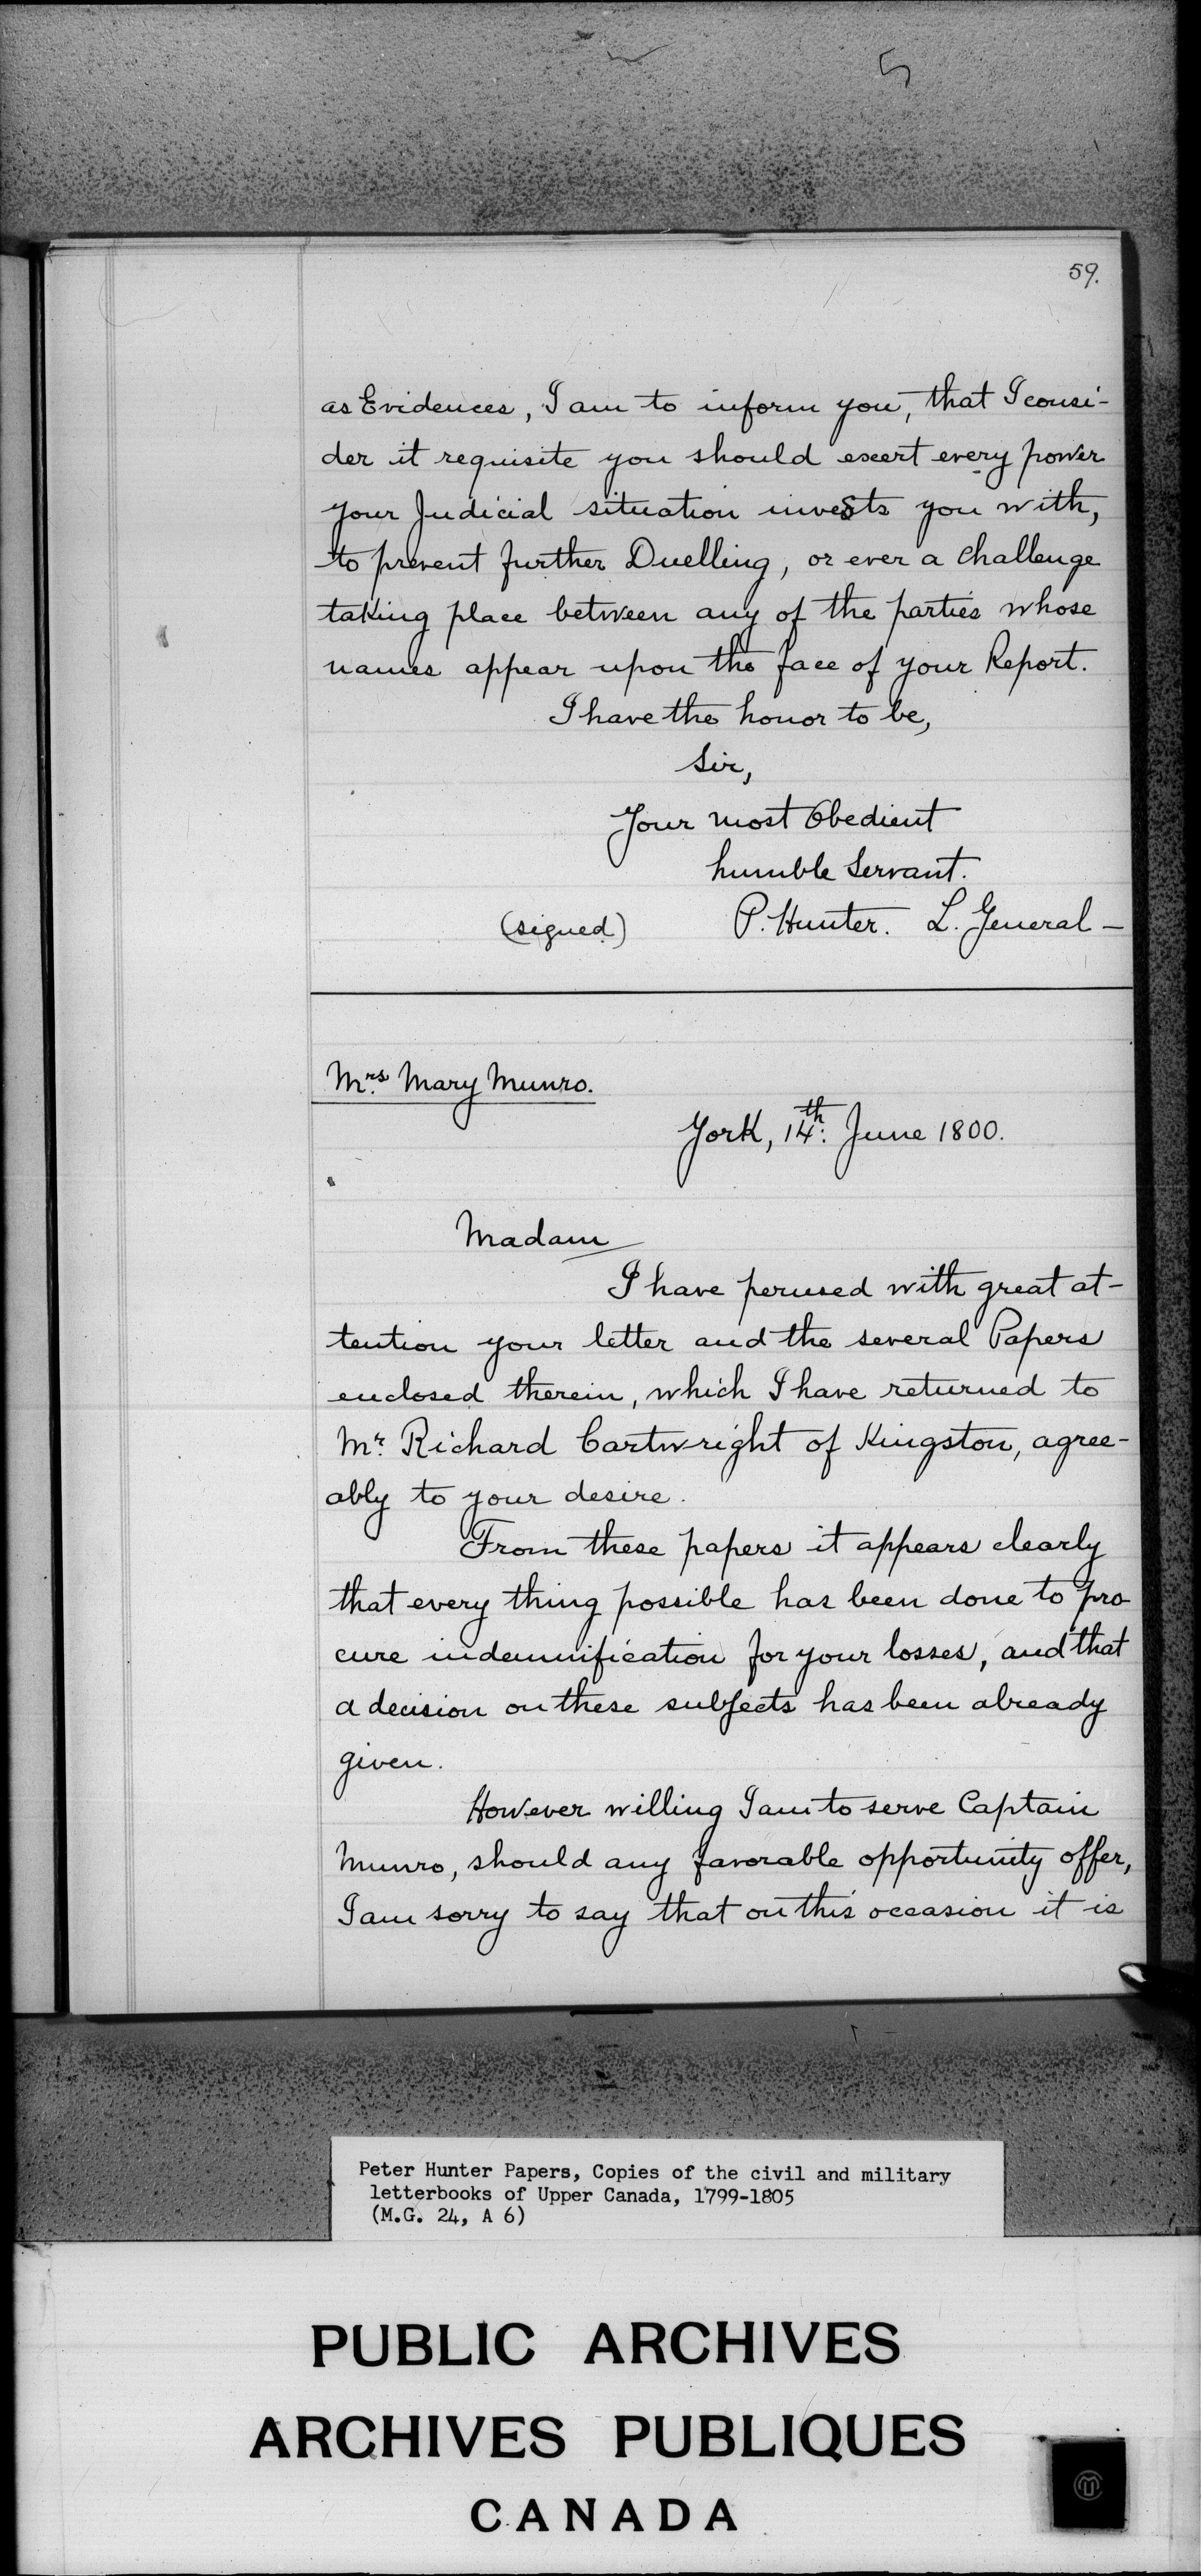 5
59.
as Evidences, I am to inform you, that I consi-
der it requisite you should exert every power
your Judicial situation invests you with,
to prevent further Duelling, or ever a Challenge
taking place between any of the parties whose
names appear upon the face of your Report.
I have the honor to be,
Sir,
Your most Obedient
humble Servant.
(signed) P. Hunter. L. General -
Mrs. Mary Munro.
York, 14th: June 1800.
Madam
I have perused with great at-
tention your letter and the several Papers
enclosed therein, which I have returned to
Mr. Richard Cartwright of Kingston, agree-
ably to your desire.
From these papers it appears clearly
that every thing possible has been done to pro-
cure indemnification for your losses, and that
a decision on these subjects has been already
given.
However willing I am to serve Captain
Munro, should any favorable opportunity offer,
I am sorry to say that on this occasion it is
Peter Hunter Papers, Copies of the civil and military
letterbooks of Upper Canada, 1799-1805
(M.G. 24, A 6)
PUBLIC ARCHIVES
ARCHIVES PUBLIQUES
CANADA